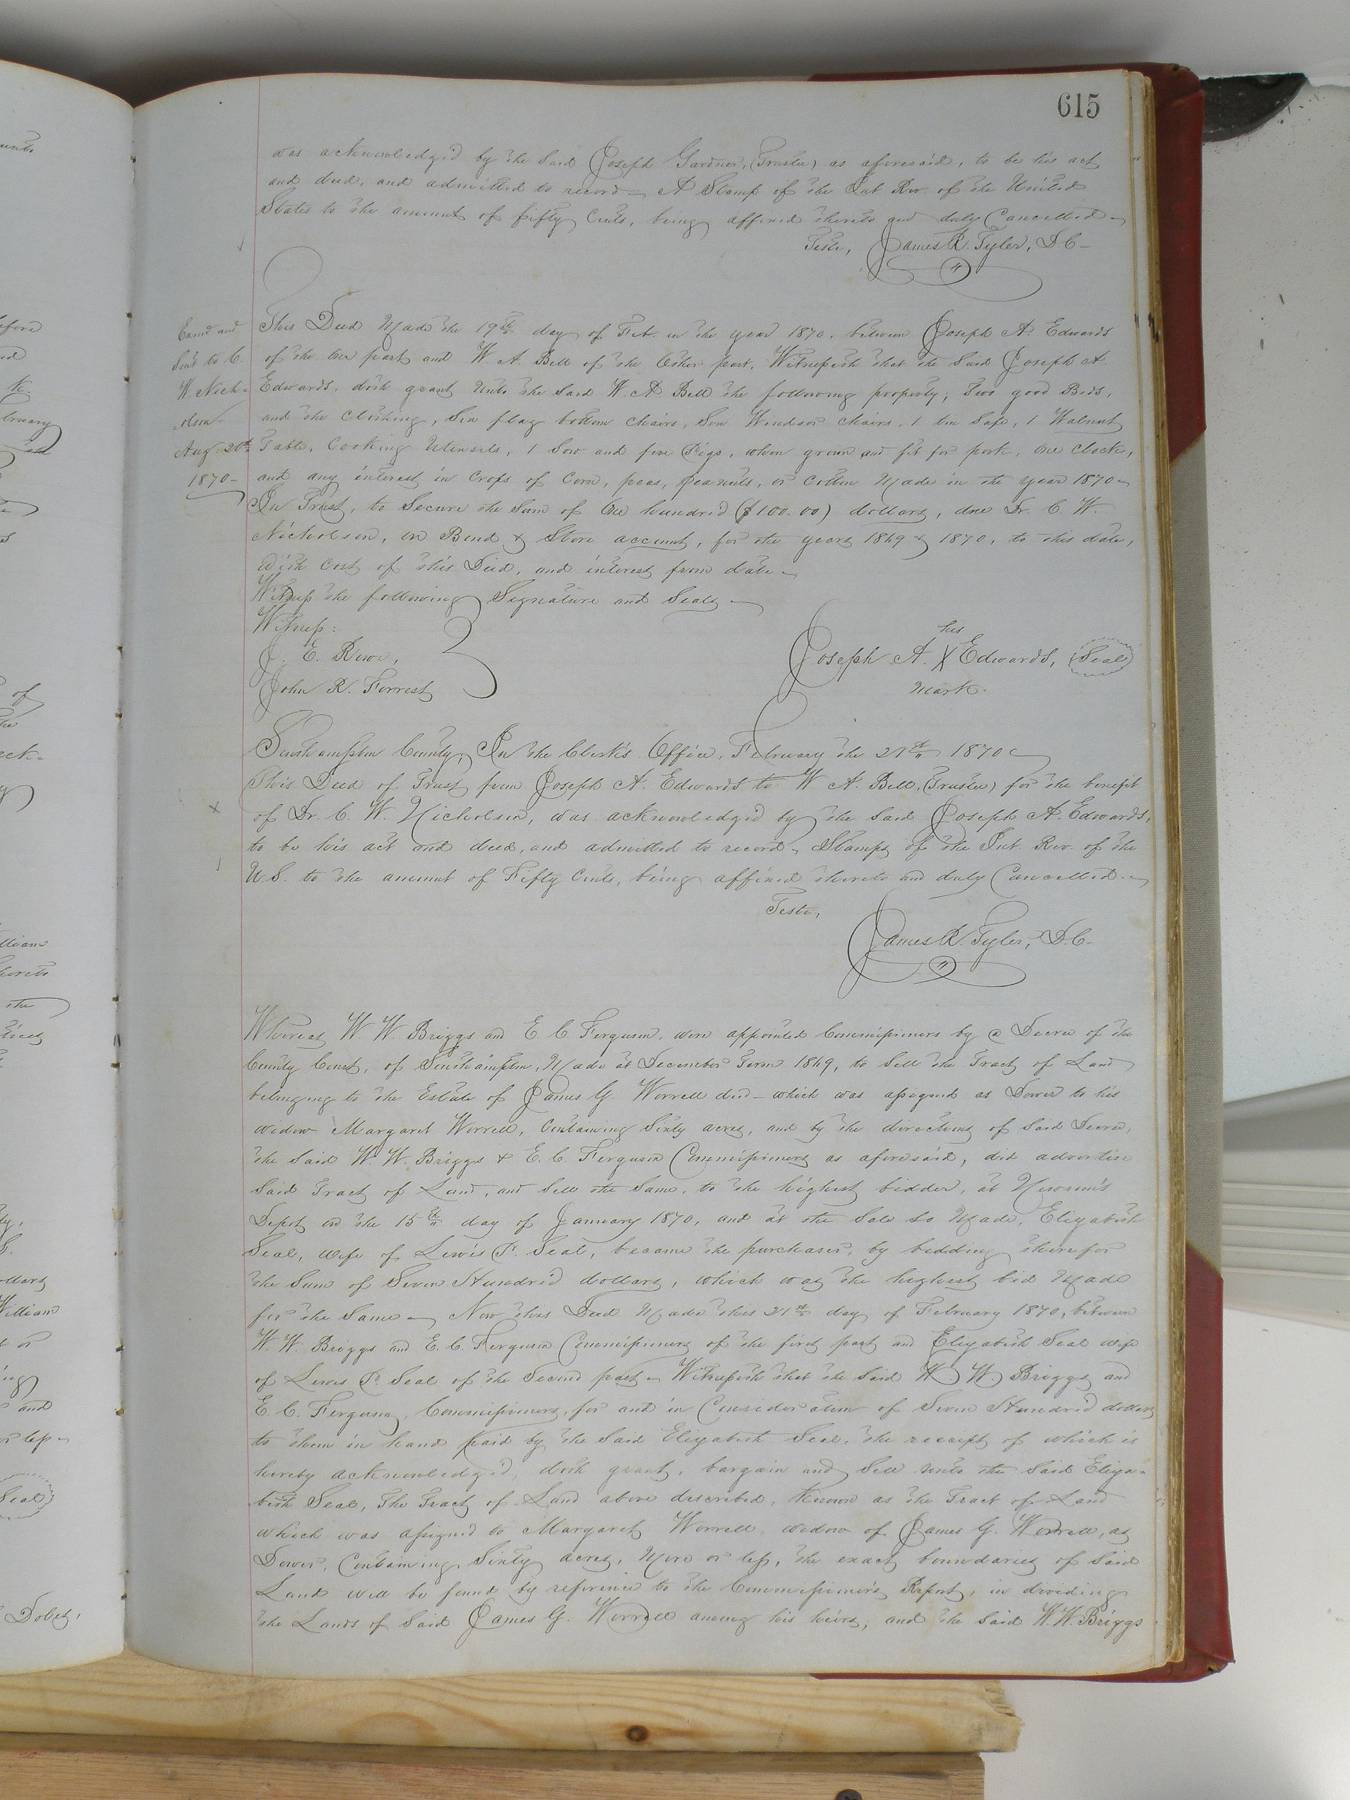 615
was acknowledged by the said Joseph Gardner, (Trustee) as aforesaid, to be his act
and deed, and admitted to record — A Stamp of the Int Rev. of the United
States to the amount of fifty Cents, being affixed thereto and duly Cancelled —
Teste, James R. Tyler, D.C—
Examd and
Sent to C.
W. Nich-
olson
Aug 20th
1870—
This Deed Made the 19th day of Feb. in the year 1870. between Joseph A. Edwards
of the One part and W. A. Bell of the Other part, Witnesseth that the Said Joseph A
Edwards, doth grant Unto the Said W. A Bell the following property, Two good Beds,
and the Clothing, Six flag bottom chairs, Six Windsor Chairs, 1 tin Safe, 1 Walnut
Table, Cooking Utensils, 1 Sow and five Pigs, when grown and fit for pork, One Clock,
and any interest in Crops of Corn, peas, peanuts, or Cotton Made in the year 1870—
In Trust, to Secure the Sum of One hundred ($100.00) dollars, due Dr. C. W.
Nicholson, on Bond & Store account, for the years 1869 & 1870, to this date,
With Cost of this Deed, and interest from date—
Witness the following Signature and Seals —
Witness:
J. E. Rowe,
John R. Forrest
his
Joseph A. X Edwards, (Seal)
mark.
Southampton County, In the Clerk's Office, February the 21st 1870—
This Deed of Trust from Joseph A. Edwards to W A. Bell, (Trustee) for the benefit
of Dr. C. W. Nicholson, was acknowledged by the Said Joseph A. Edwards,
to be his act and deed, and admitted to record, Stamps of the Int Rev. of the
U.S. to the amount of Fifty Cents, being affixed thereto and duly Cancelled.—
Teste,
James R. Tyler, D.C.
Whereas W W. Briggs and E C. Ferguson, were appointed Commissioners by a Decree of the
County Court, of Southampton, Made at December Term 1869, to Sell the Tract of Land
belonging to the Estate of James G Worrell decd — which was assigned as Dower to his
widow Margaret Worrell, Containing Sixty acres, and by the directions of Said Decree,
the Said W W. Briggs & E. C. Ferguson Commissioners as aforesaid, did advertise
Said Tract of Land, and Sell the Same, to the highest bidder, at Newsom's
Depot on the 15th day of January 1870, and at the Sale So Made, Elizabeth
Seal, wife of Lewis P. Seal, became the purchaser, by bidding therefor
the Sum of Seven Hundred dollars, which was the highest bid Made
for the Same — Now this Deed Made this 21st day of February 1870, between
W. W. Briggs and E. C. Ferguson Commissioners of the first part and Elizabeth Seal wife
of Lewis P. Seal of the Second part — Witnesseth that the Said W W Briggs and
E C. Ferguson, Commissioners, for and in Consideration of Seven Hundred dollars
to them in hand paid by the Said Elizabeth Seal, the receipt of which is
hereby acknowledged, doth grant, bargain and Sell unto the Said Eliza-
beth Seal, The Tract of Land above described, Known as the Tract of Land
which was assigned to Margaret Worrell widow of James G. Worrell, as
Dower, Containing Sixty acres, More or less, the exact boundaries of Said
Land will be found by reference to the Commissioners Report, in dividing
the Lands of Said James G. Worrell among his heirs, and the Said W. W. Briggs